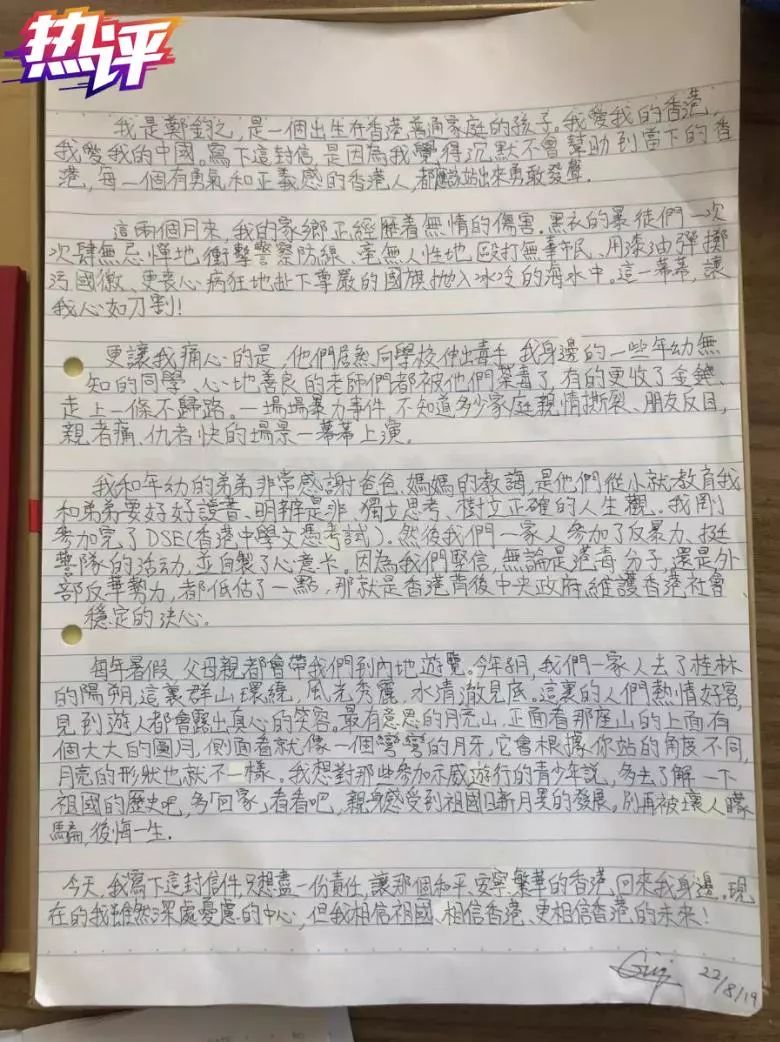 热评
我是鄭鈞之,是一個出生在香港普通家庭的孩子。我愛我的香港,
我愛我的中國。寫下這封信,是因為我覺得沉默不會幫助到當下的香
港,每一個有勇氣和正義感的香港人,都應該站出來勇敢發聲.
這兩個月來,我的家鄉正經歷着無情的傷害.黑衣的暴徒們一次
次肆無忌憚地衝擊警察防線、毫無人性地毆打無辜市民、用漆油彈擲
污國徽、更喪心病狂地扯下尊嚴的國旗拋入冰冷的海水中。這一幕幕,讓
我心如刀割!
更讓我痛心的是,他們居然向學校伸出毒手.我身邊的一些年幼無
知的同學、心地善良的老師們都被他們荼毒了,有的更收了金錢、
走上一條不歸路。一場場暴力事件,不知道多少家庭親情撕裂、朋友反目,
親者痛、仇者快的場景一幕幕上演。
我和年幼的弟弟非常感謝爸爸、媽媽的教誨,是他們從小就教育我
和弟弟要好好讀書、明辨是非、獨立思考、樹立正確的人生觀。我剛
參加完了DSE(香港中學文憑考試)。然後我們一家人參加了反暴力、挺
警隊的活動,並自製了心意卡。因為我們堅信,無論是港毒分子,還是外
部反華勢力,都低估了一點,那就是香港背後中央政府維護香港社會、
穩定的決心。
每年暑假,父母親都會帶我們到內地遊覽。今年8月,我們一家人去了桂林
的陽朔,這裏群山環繞,風光秀麗,水清澈見底。這裏的人們熱情好客,
見到遊人都會露出真心的笑容。最有意思的月亮山,正面看那座山的上面有
個大大的圓月,側面看就像一個彎彎的月牙,它會根據你站的角度不同,
月亮的形狀也就不一樣。我想對那些參加示威遊行的青少年說,多去了解一下
祖國的歷史吧,多「回家」看看吧,親身感受到祖國日新月異的發展。別再被壞人矇
騙,後悔一生.
今天,我寫下這封信件,只想盡一份責任,讓那個和平、安寧、繁華的香港,回來我身邊。現
在的我雖然深處憂慮的中心,但我相信祖國、相信香港、更相信香港的未來!
22/8/19